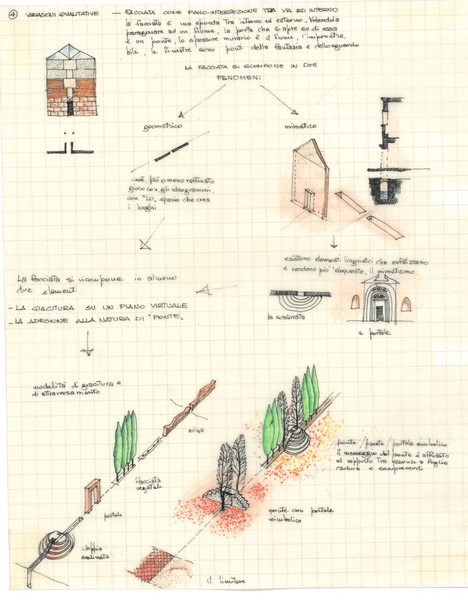 4 VARIAZIONI QUALITATIVE - FACCIATA COME PIANO-INTERSEZIONE TRA VIA ED INTERNO
la facciata è una sponda tra interno ed esterno. Volendola
paragonare ad un fiume, la porta che si apre su di essa
è un ponte, lo spessore murario è il fiume, l'impenetra
bile, le finestre sono ponti della fantasia e dello sguardo
LA FACCIATA SI SCOMPONE IN DUE
FENOMENI
geometrico
mimetico
più o meno raffinato
gioco con gli ideogrammi,
spazio che crea
i luoghi
esistono elementi linguistici che enfatizzano
e rendono più eloquente il mimetismo
la scalinata
il portale
La facciata si ricompone in almeno
due elementi
- LA GIACITURA SU UN PIANO VIRTUALE
- LA ADESIONE ALLA NATURA DI "PONTE"
modalità di giacitura e
di attraversamento
facciata
vegetale
portale
doppia
scalinata
ponte con portale
simbolico
ponte/portale simbolico
il messaggio del ponte è affidato
al rapporto tra
caduca e sempreverdi
il limitare